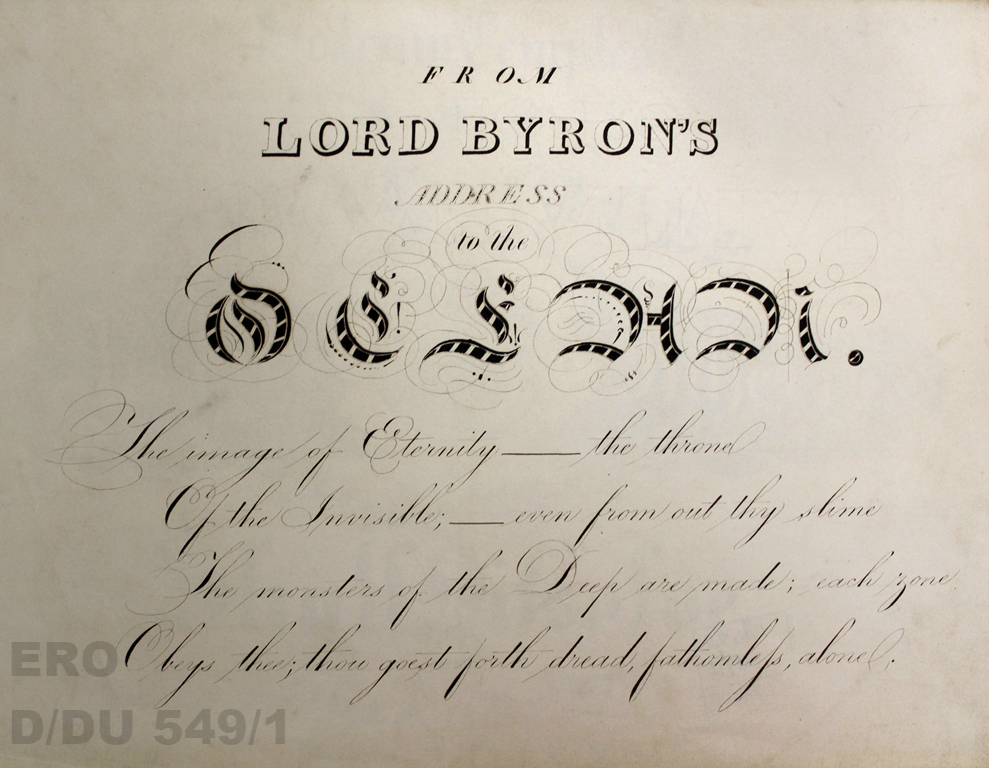 FROM
LORD BYRON'S
ADDRESS
to the
OCEAN.
The image of Eternity — the throne
Of the Invisible; — even from out thy slime
The monsters of the Deep are made; each zone
Obeys thee; thou goest forth dread, fathomleſs, alone.
ERO
D/DU 549/1